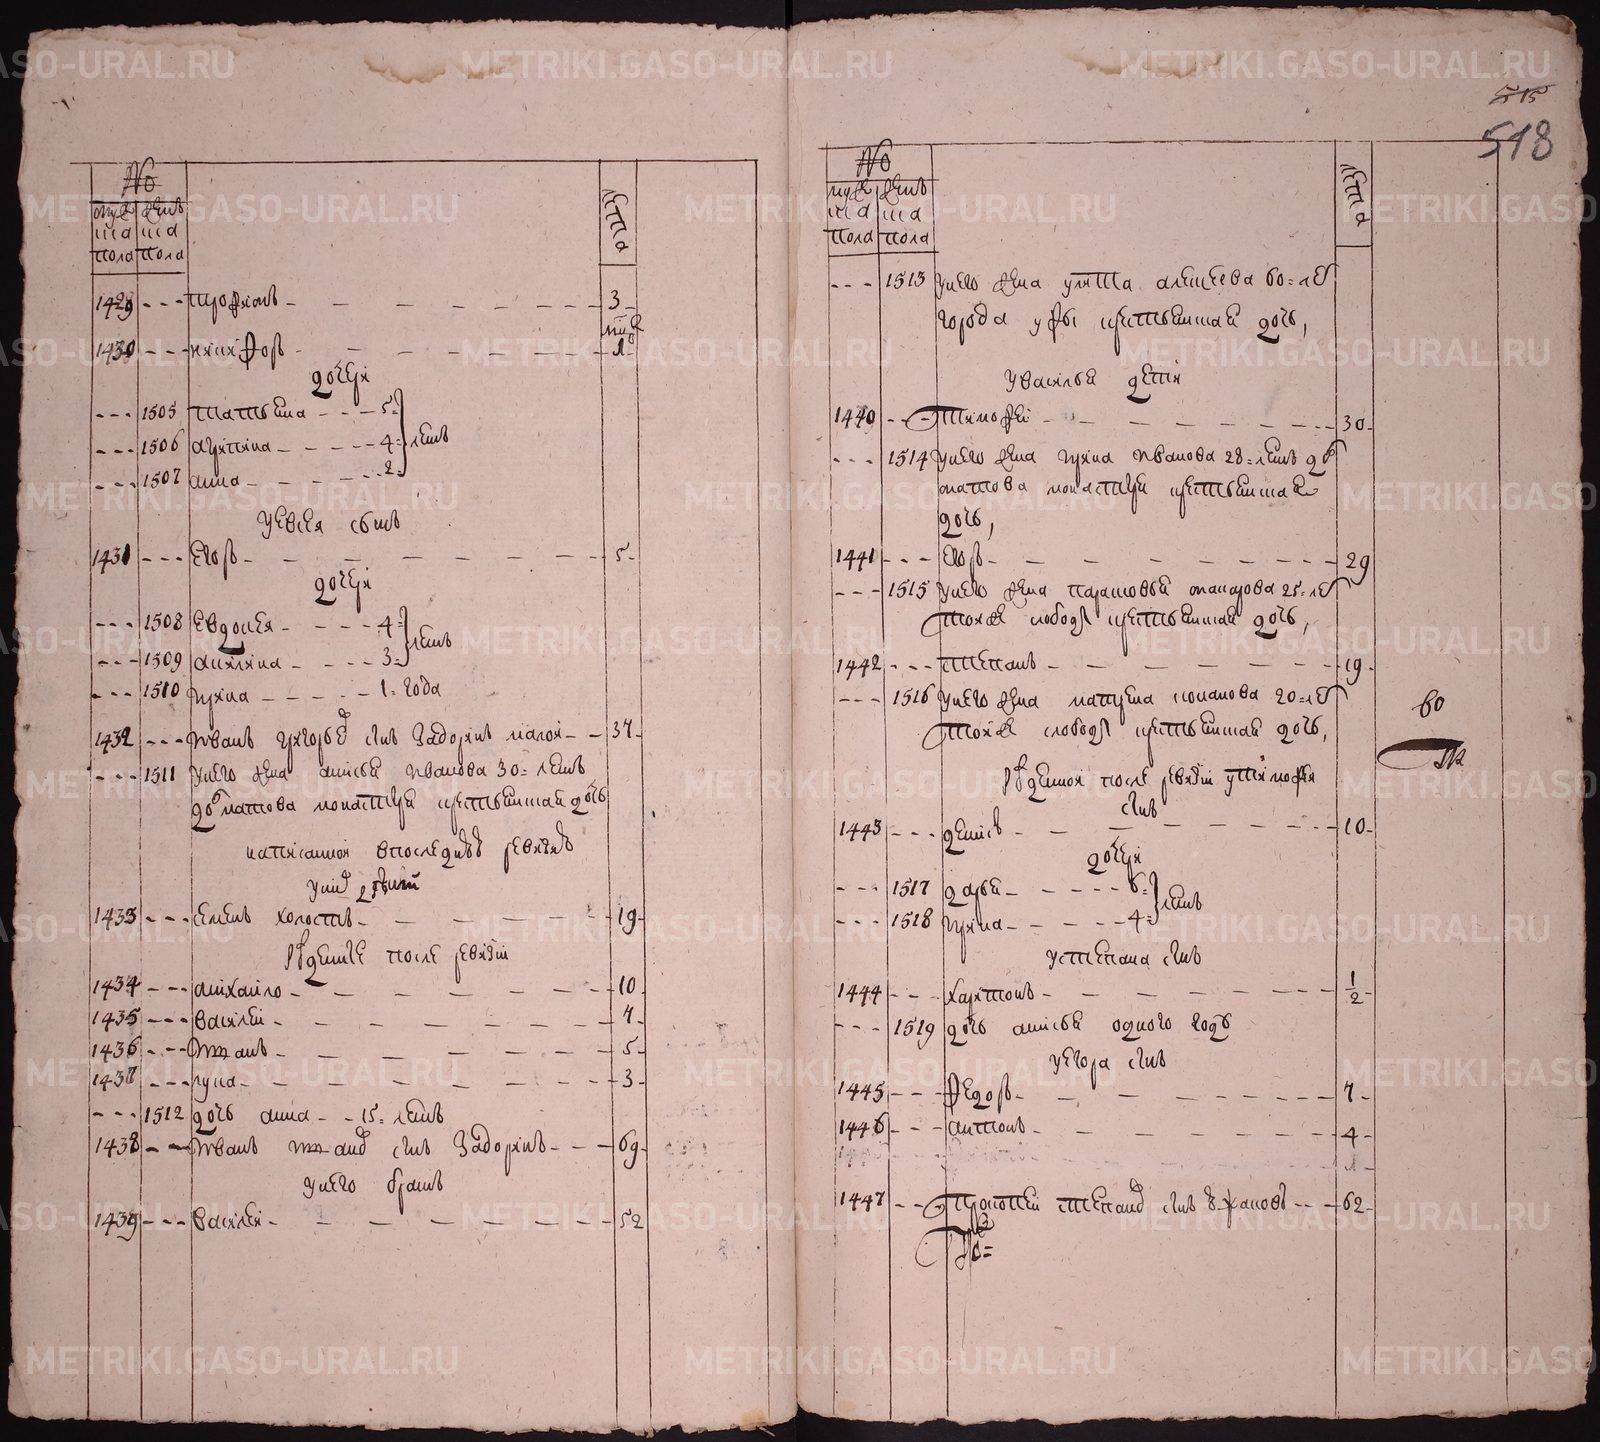 №
муже
ска
пола
женс
ска
пола
лета
1429 - - - трофимъ - - - 3 -
1430 - - - никифоръ - - - 1 -
дочери
- - - 1505 татьяна - - - 5 =
- - - 1506 агрипина - - - 4 = летъ
- - - 1507 анна - - - 2 =
У евсея сынъ
1431 - - - егоръ - - - 5 -
дочери
- - - 1508 евдокея - - - 4 =
летъ
- - - 1509 акилина - - - 3 =
- - - 1510 ирина - - - 1 = года
1432 - - - иванъ григорьевъ снъ Задоринъ малой - - 37 -
- - - 1511 унего жена анисья иванова 30 = летъ
долматова монастыря крестьянская дочь
написанной впоследнѣй ревизiи
1433 - - - холостъ - - - 19 -
Рожденные после ревизiи
1434 - - - михаило - - - 10 -
1435 - - - василей - - - 7 -
1436 - - - - - - 5 -
1437 - - - лука - - - 3 -
- - - 1512 дочь анна - - 15 = летъ
1438 - - иванъ снъ Задоринъ - - - 69 -
унего братъ
1439 - - - василей - - - 52
515
518
№
муже
ска
пола
женс
ска
пола
лета
- - - 1513 унего жена улита алексеева 60 = летъ
города уфы крестьянская дочь,
У василья дети
1440 - - тимофей - - - 30 -
- - - 1514 унего жена ирина иванова 28 = летъ дол
матова монастыря крестьянская
дочь,
1441 - - - егоръ - - - 29
- - - 1515 унего жена парасковья макарова 25 = летъ
тояже слободы крестьянская дочь,
1442 - - - степанъ - - - 19 -
- - - 1516 унего жена 20 = летъ
тояже слободы крестьянская дочь,
60
Рожденной после ревизiи у тимофея
снъ
1443 - - - денисъ - - - 10 -
дочери
- - - 1517 дарья - - - 6 =
летъ
- - - 1518 ирина - - - 4 =
У степана снъ
1444 - - - харитонъ - - - 1/2 -
- - - 1519 дочь анисья одного году
У егора снъ
1445 - - - федоръ - - - 7 -
1446 - - - антонъ - - - 4 -
1447 - - прокопей степановъ снъ - - 62 -